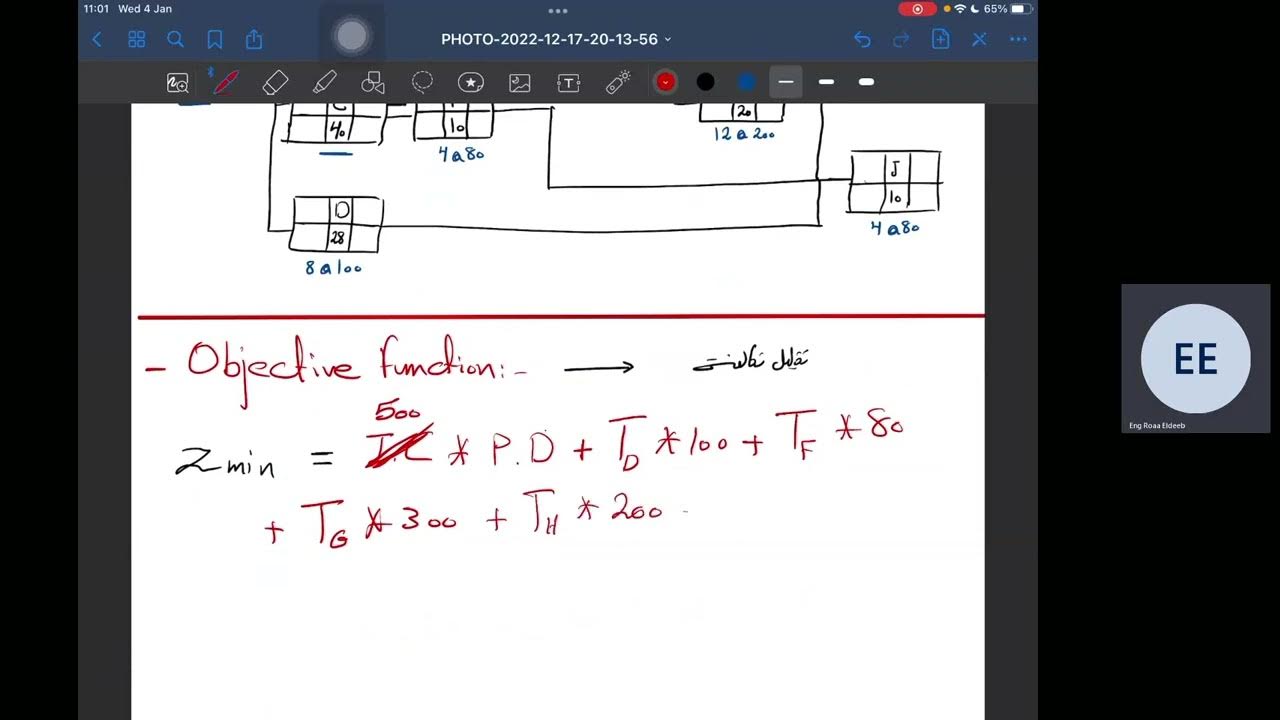 11:01 Wed 4 Jan
65%
PHOTO-2022-12-17-20-13-56
C
40
10
4@80
20
12@200
J
10
4@80
D
28
8@100
- Objective function:- → تقليل تكاليف
500
Zmin = I.C * P.D + T_D * 100 + T_F * 80
+ T_G * 300 + T_H * 200
EE
Eng Roaa Eldeeb